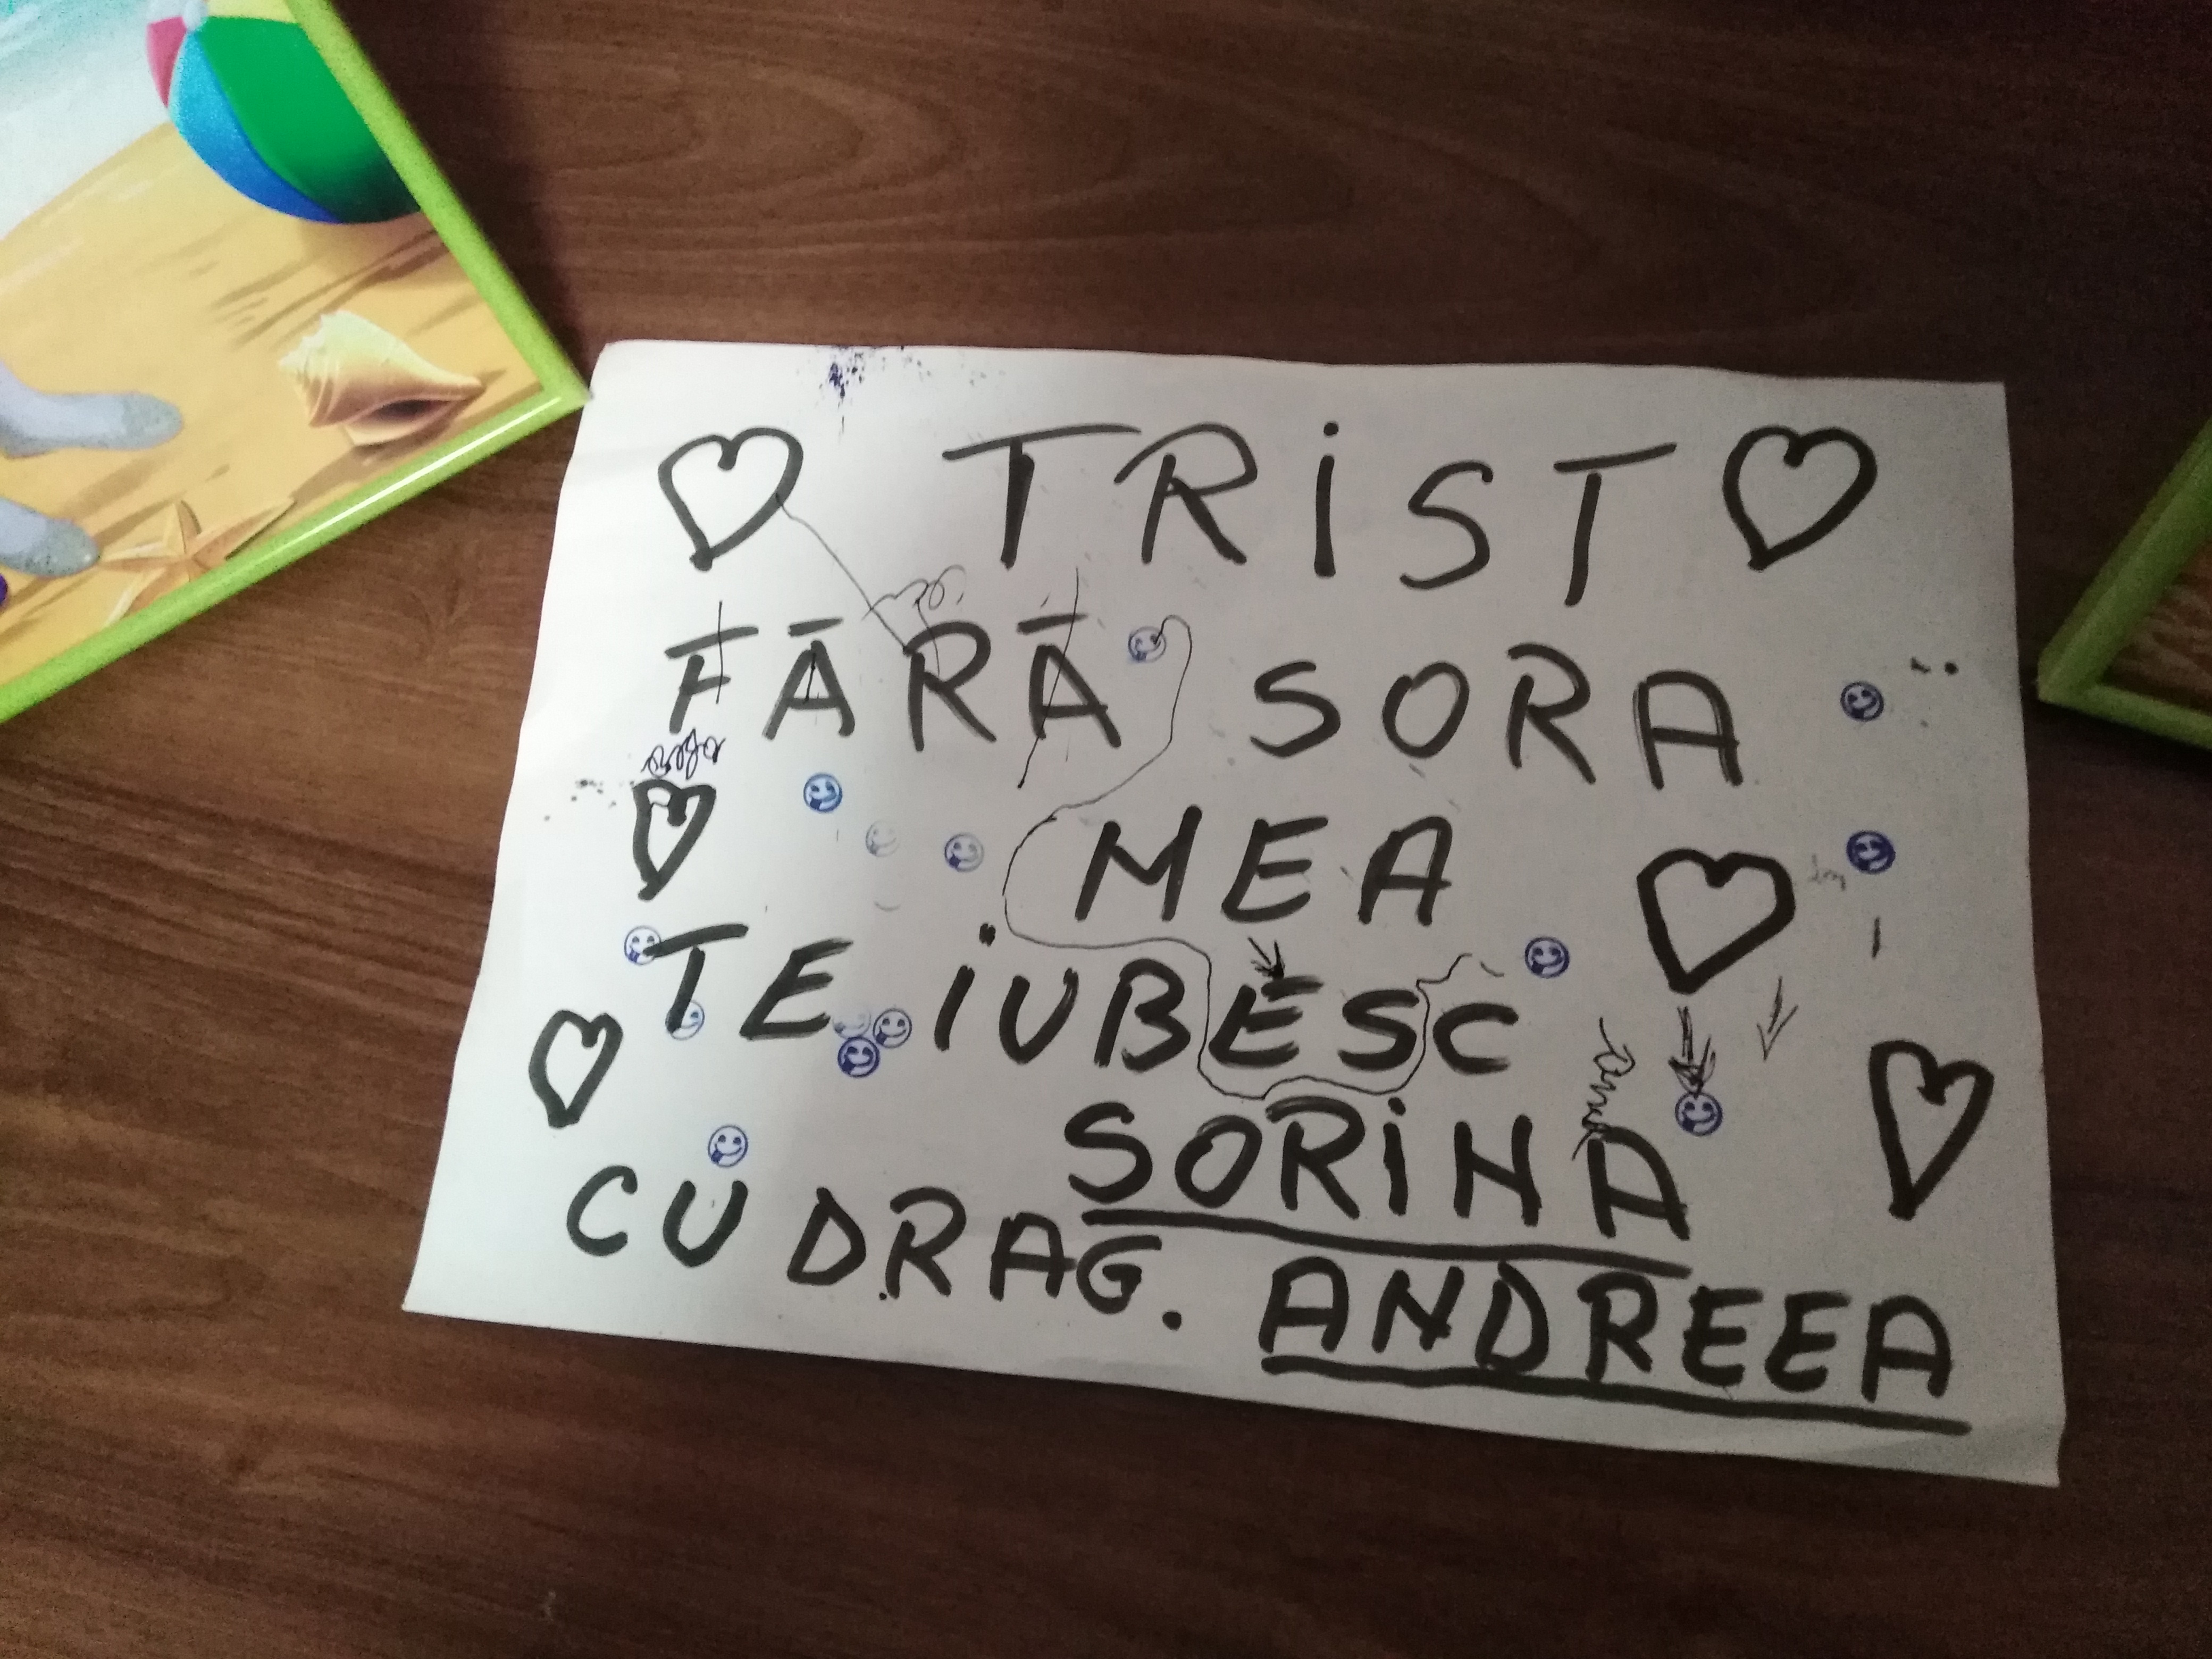 TRiST
FĀRĀ SORA
MEA
TE iUBESC
SORiNA
CU DRAG. ANDREEA